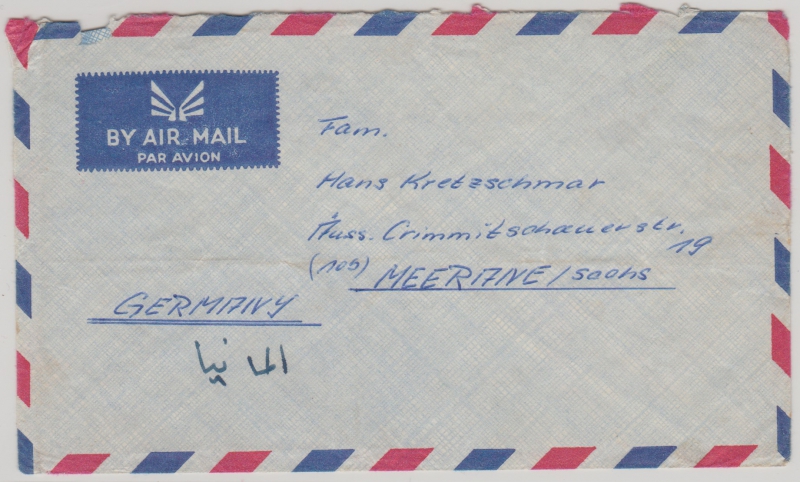 BY AIR MAIL
PAR AVION
Fam.
Hans Kretzschmar
Äuss. Crimmitschauerstr.
19
(10b) MEERANE/Sachs
GERMANY
المانيا